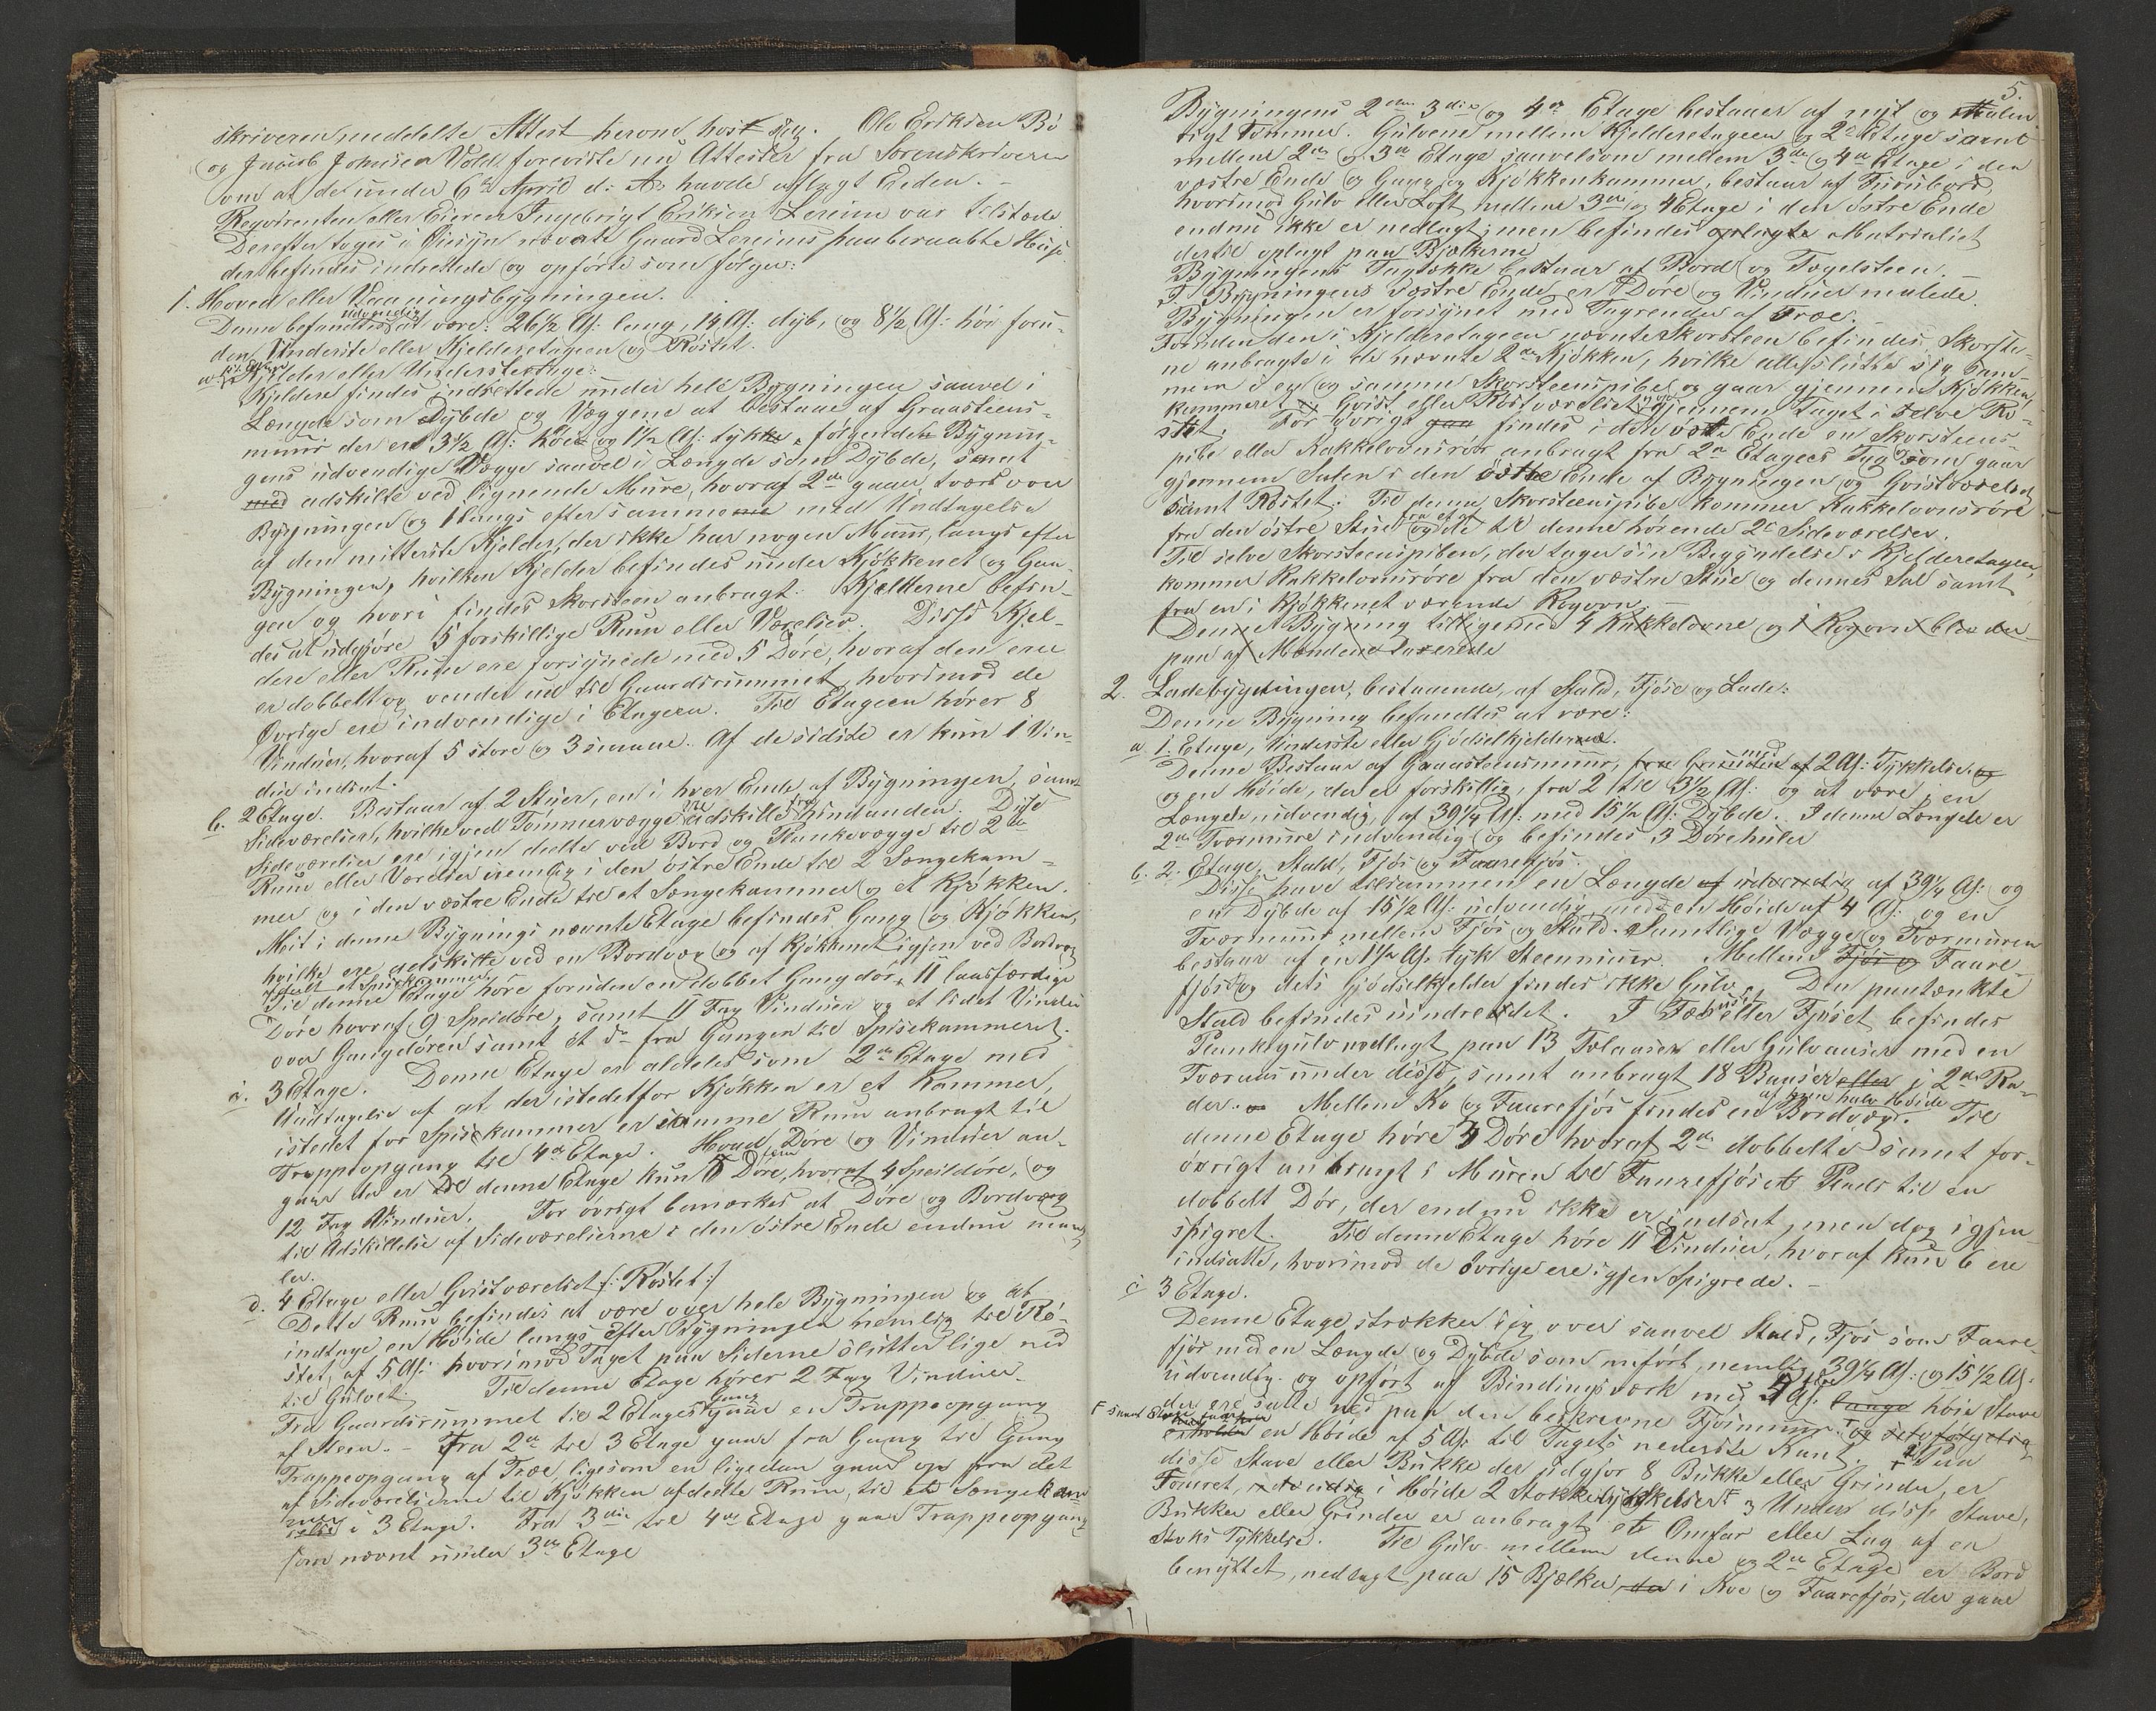 skriveren meddelte Attest herom hos sig. Ole Eriksen Bö
og Jacob Johnsen Vold foreviste nu Attester fra Sorenskriveren
om at de under 6te April d: A: havde aflagt Eeden. –
Reqvirenten eller Eieren Ingebrigt Eriksen Lereim var tilstæde
Derefter toges i Öiesyn nævnte Gaard Lereims paaberaabte Huse
der befindes indrettede og opförte som fölger:
1. Hoved eller Vaaningsbygningen.
Denne befandtes udvendig at være: 26½ Al: lang, 14 Al: dyb, og 8½ Al: höi foru-
den Underste eller Kjelderetagen og Röstet.
a 1st Etage Kjelder eller Understeetage:
Kjeldere findes indrettede under hele Bygningen saavel i
Længde som Dybde og Væggene at bestaae af Graasteens-
muur der ere 3½ Al: höie og 1½ Al: tykke, fölgende Bygnin-
gens udvendige Vægge saavel i Længde som Dybde, samt
med adskilte ved lignende Mure, hvoraf 2de gaaer tværs over
Bygningen og 1 langs efter samme med Undtagelse
af den mitterste Kjelder, der ikke har nogen Muur, langs efter
Bygningen, hvilken Kjelder befindes under Kjökkenet og Gan-
gen og hvori findes Skorsteen anbragt. Kjelderne befin-
des at udgjöre 5 forskillige Rum eller Værelser. Disse Kjel-
dere eller Rum ere forsynede med 5 Döre, hvoraf den ene
er dobbelt og vender ud til Gaardsrummet, hvorimod de
Övrige ere indvendige i Etagen. Til Etagen hörer 8
Vinduer, hvoraf 5 store og 3 smaae. Af de sidste er kun 1 Vin-
due indsat.
b. 2 Etage. Bestaar af 2 Stuer, en i hver Ende af Bygningen, samt
Sideværelser, hvilke ved Tömmervægge ere adskilte fra hinanden. Disse
Sideværelser ere igjen deelte ved Bord og Plankevægge til 2de
Rum eller Værelser nemlig i den östre Ende til 2 Sængekam-
mer og i den vestre Ende til et Sængekammer og et Kjökken.
Mit i denne Bygnings nævnte Etage befindes Gang og Kjökken,
hvilke ere adskilte ved en Bordvæg og af Kjökkenet igjen ved Bordvæg
afdeelt et Spisekammer
Til denne Etage höre foruden en dobbet Gangdör, 11 laasfærdige
Döre hvoraf 9 Speildöre, samt 11 Fag Vinduer og et lidet Vindue
over Gangdören samt et do fra Gangen til Spisekammeret.
c. 3 Etage. Denne Etage er aldeles som 2den Etage med
Undtagelse af at der istedetfor Kjökken er et Kammer,
istedet for Spisekammer er samme Rum anbragt til
Trappeopgang til 4de Etage. Hvad Döre og Vinduer an-
gaar da er til denne Etage kun 5 fem Döre, hvoraf 4 Speildöre, og
12 Fag Vinduer. For övrigt bemærkes at Döre og Bordvæg
til Adskillelse af Sideværelserne i den östre Ende endnu mang-
ler.
d. 4 Etage eller Gvistværelset /: Röstet :/
Dette Rum befindes at være over hele Bygningen og at
indtage en Höide langs efter Bygningen nemlig til Rö-
stet, af 5 Al: hvorimod Taget paa Siderne slutter lige ned
til Gulvet. Til denne Etage hörer 2 Fag Vinduer.
Fra Gaardsrummet til 2 Etages Gang gaaer en Trappeopgang
af Steen. – Fra 2den til 3 Etage gaar fra Gang til Gang
Trappeopgang af Træe, ligesom en ligedan gaar op fra det
af Sideværelserne til Kjökken afdeelte Rum, til et Sængekam-
mer i 3 Etage. Fra 3die til 4de Etage gaar Trappeopgang
som nævnt under 3die Etage
5.
Bygningens 2den 3die og 4de Etage bestaaer af nyt og
Tömmer. Gulvene mellem Kjelderetagen og 2den Etage samt
mellem 2den og 3die Etage saavelsom mellem 3die og 4de Etage i den
vestre Ende og Gang og Kjökkenkammer, bestaar af Furubord,
hvorimod Gulv eller Loft mellem 3die og 4 Etage i den östre Ende
endnu ikke er nedlagt, men befindes oplagte Materialiet
dertil oplagt paa Bjelkerne
Bygningens Tagtække bestaaer af Bord og Tægelsteen. –
I Bygningens vestre Ende er Döre og Vinduer malede.
Bygningen er forsynet med Tagrender af Træe. –
Foruden den i Kjelderetagen nævnte Skorsteen befindes Skorste-
ne anbragte i de nævnte 2de Kjökken, hvilke alle slutte sig sam-
men i en og samme Skorsteenspibe og gaar gjennem Kjökken-
kammeret og Gvist eller Röstværelset gjennem Taget i selve Rö-
stet. For övrigt findes i den östre Ende en Skorsteens-
pibe eller Kakkelovnsrör anbragt fra 2den Etages Tag som gaar
gjennem Salen i den östre Ende af Bygningen og Gvistværelset
samt Röstet. Til denne Skorsteenspibe kommer Kakkelovnsröre
fra den östre Stue og fra et af de til denne hörende 2de Sideværelser.
Til selve Skorsteenspiben, der tager sin Begyndelse i Kjelderetagen,
kommer Kakkelovnsröre fra den vestre Stue og dennes Sal samt
fra en i Kjökkenet værende Kogovn. –
Denne Bygning tilligemed 4 Kakkelovne og 1 Kogovn blev der-
paa af Mændene Taxerede
2. Ladebygningen, bestaaende, af Stald, Fjöse og Lade:
Denne Bygning befandtes at være:
a. 1. Etage, Underste eller Gjödselkjelderne.
Denne Bestaar af Graasteensmuur, fra Grunden af med 2 Al: Tykkelse og
og en Höide, der er forskillig, fra 2 til 3½ Al: og at være i en
Længde, udvendig, af 39¼ Al: med 15½ Al: Dybde. I denne Længde er
2de Tvermure indvendig og befindes 3 Dörehuler
b. 2. Etage, Stald, Fjös og Faarefjös.
Disse have tilsammen en Længde af udvendig af 39¼ Al: og
en Dybde af 15½ Al: udvendig, med en Höide af 4 Al: og en
Tvermuur mellem Fjös og Stald. Samtlige Vægge og Tværmuren
bestaar af en 1½ Al. tyk Steenmuur. Mellem Fjös og Faare-
fjöset og dets Gjödselkjelder findes ikke Gulv. Den paatænkte
Stald befindes uindredet. I Fæhuset eller Fjöset befindes
Plankegulv nedlagt paa 13 Tolaaser eller Gulvaaser med en
Tveraas under disse, samt anbragt 18 Baaser efter i 2de Ra-
der. Mellem Ko og Faarefjös findes en Bordvæg af dens halve Höide. Til
denne Etage höre 3 Döre hvoraf 2de dobbelte samt for-
övrigt anbragt i Muren til Faarefjöset Plads til en
dobbelt Dör, der endnu ikke er indsat, men dog igjen-
spigret. Til denne Etage höre 11 Vinduer, hvoraf kun 6 ere
indsatte, hvorimod de Övrige ere igjenspigrede. –
c 3 Etage.
Denne Etage strækker sig over saavel Stald, Fjös som Faare-
fjös med en Længde og Dybde som anfört, nemlig 39¼ Al: og 15½ Al:
udvendig og opfört af Bindingsværk med 4 Al: lange höie Stave
der ere satte ned paa den beskrevne Fjösmuur og selvfölgelig
en Höide af 5 Al: til Tagets nederste Kant. Paa
disse Stave eller Bukke der udgjör 8 Bukke eller Grinder, er
Foruret, udvendig i Höide 2 Stokketykkelser. Under disse Stave,
Bukker eller Grinder er anbragt et Omfar eller Lag af en
Stoks Tykkelse. Til Gulv mellem denne og 2den Etage er Bord
benyttet, nedlagt paa 15 Bjelker, der i Koe og Faarefjös, der gaar